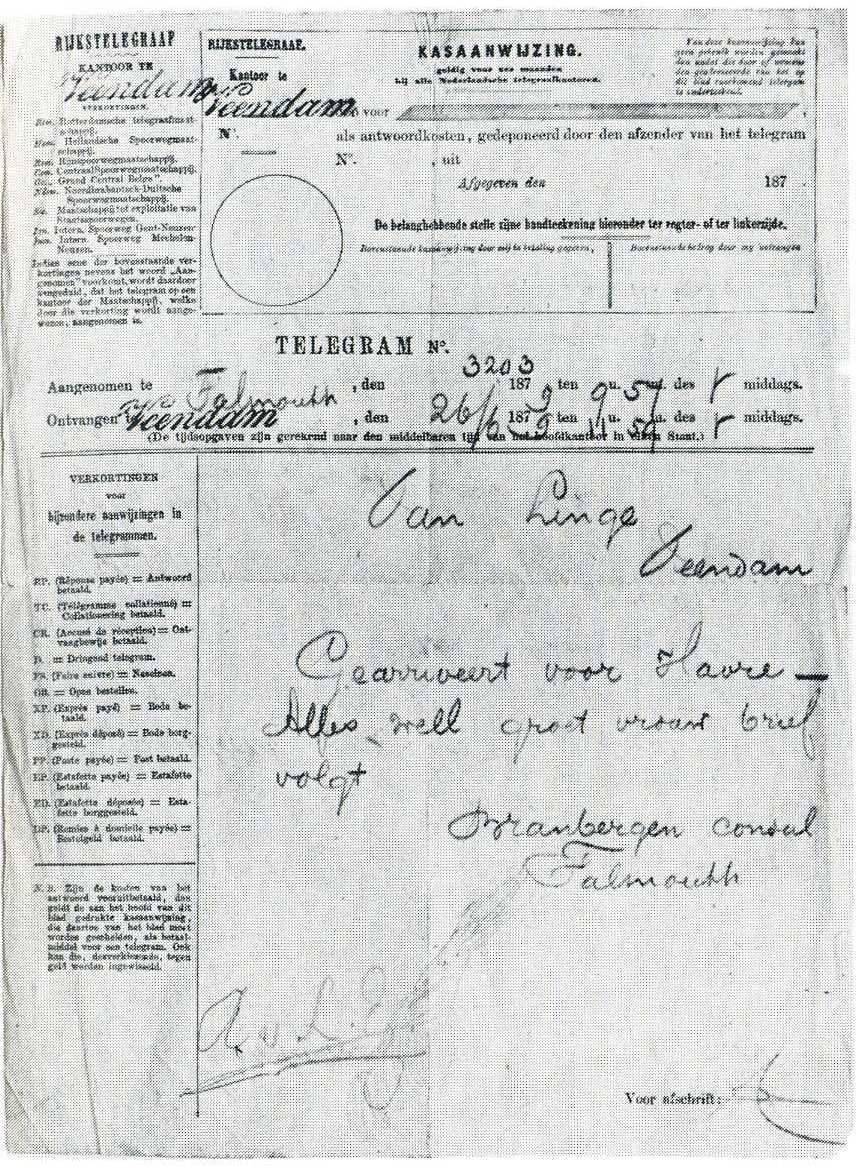 RIJKSTELEGRAAF
KANTOOR TE
Veendam
VERKORTINGEN.
Rotterdamsche telegraafmaat-
schappij.
Hollandsche Spoorwegmaat-
schappij.
Rijnspoorwegmaatschappij.
Centraal Spoorwegmaatschappij.
Grand Central Belge".
Noordbrabantsch-Duitsche
Spoorwegmaatschappij.
Maatschappij tot exploitatie van
Staatsspoorwegen.
Intern. Spoorweg Gent-Neuzen
Intern. Spoorweg Mechelen-
Neuzen.
Indien eene der bovenstaande ver-
kortingen nevens het woord „Aan-
genomen" voorkomt, wordt daardoor
aangeduid, dat het telegram op een
kantoor der Maatschappij, welke
door die verkorting wordt aange-
wezen, aangenomen is.
RIJKSTELEGRAAF.
Kantoor te
Veendam
N°.
KASAANWIJZING.
geldig voor zes maanden
bij alle Nederlandsche telegraafkantoren.
Van deze kasaanwijzing kan
geen gebruik worden gemaakt
dan nadat die door of vanwege
den geadresseerde van het op
dit blad voorkomend telegram
is onderteekend.
voor
als antwoordkosten, gedeponeerd door den afzender van het telegram
N°. , uit
Afgegeven den 187 .
De belanghebbende stelle zijne handteekening hieronder ter regter- of ter linkerzijde.
Bovenstaande kasaanwijzing door mij in betaling gegeven,
Bovenstaande bedrag door mij ontvangen
TELEGRAM N°.
3203
Aangenomen te Falmouth , den 1879 ten 9 u. 57 m. des middags.
Ontvangen te Veendam , den 26/6 1879 ten 11 u. 59 m. des middags.
(De tijdsopgaven zijn gerekend naar den middelbaren tijd van het hoofdkantoor in elken Staat.)
VERKORTINGEN
voor
bijzondere aanwijzingen in
de telegrammen.
RP. (Réponse payée) = Antwoord
betaald.
TC. (Télégramme collationné) =
Collationering betaald.
CR. (Accusé de réception) = Ont-
vangbewijs betaald.
D. = Dringend telegram.
FS. (Faire suivre) = Nazeinen.
OB. = Open bestellen.
XP. (Exprès payé) = Bode be-
taald.
XD. (Exprès déposé) = Bode borg-
gesteld.
PP. (Poste payée) = Post betaald.
EP. (Estafette payée) = Estafette
betaald.
ED. (Estafette déposée) = Esta-
fette borggesteld.
DP. (Remise à domicile payée) =
Bestelgeld betaald.
N. B. Zijn de kosten van het
antwoord vooruitbetaald, dan
geldt de aan het hoofd van dit
blad gedrukte kasaanwijzing,
die daartoe van het blad moet
worden gescheiden, als betaal-
middel voor een telegram. Ook
kan die, desverkiezende, tegen
geld worden ingewisseld.
Van Linge
Veendam
Gearriveert voor Havre —
Alles well groet vrouw brief
volgt
Branbergen consul
Falmouth
A. v. L.
Voor afschrift: